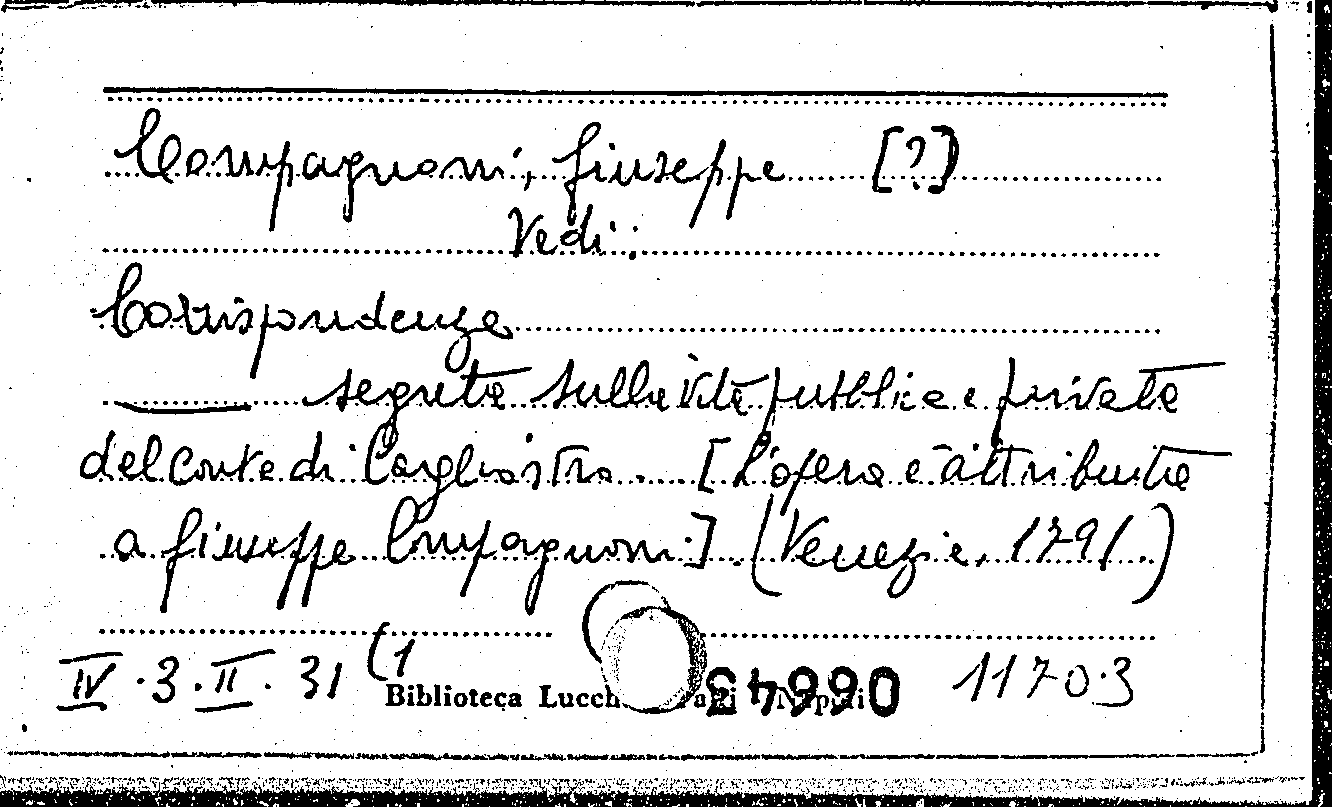 Compagnoni, Giuseppe [?]
Vedi:
Corrispondenza
segreta sulla vita pubblica e privata
del conte di Cagliostro.... [L'opera è attribuita
a Giuseppe Compagnoni.] (Venezia, 1791.)
IV.3.II.31 (1
Biblioteca Lucch Palli Napoli 06643 11703